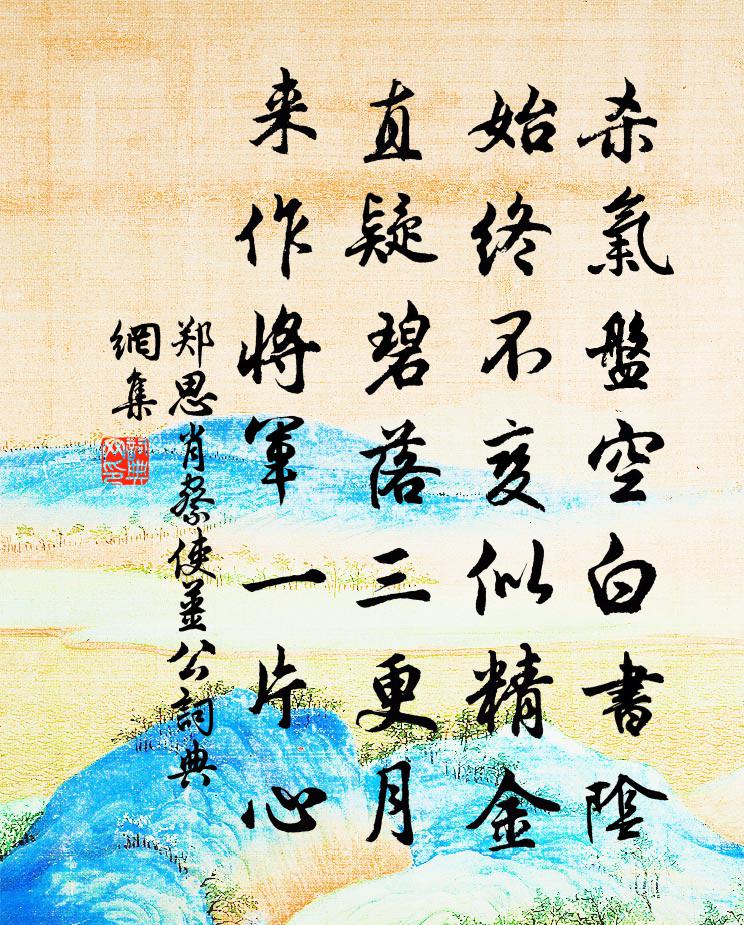 杀氣盤空白書陰
始終不变似精金
直疑碧落三更月
来作將軍一片心
郑思肖察使姜公詞典
網集